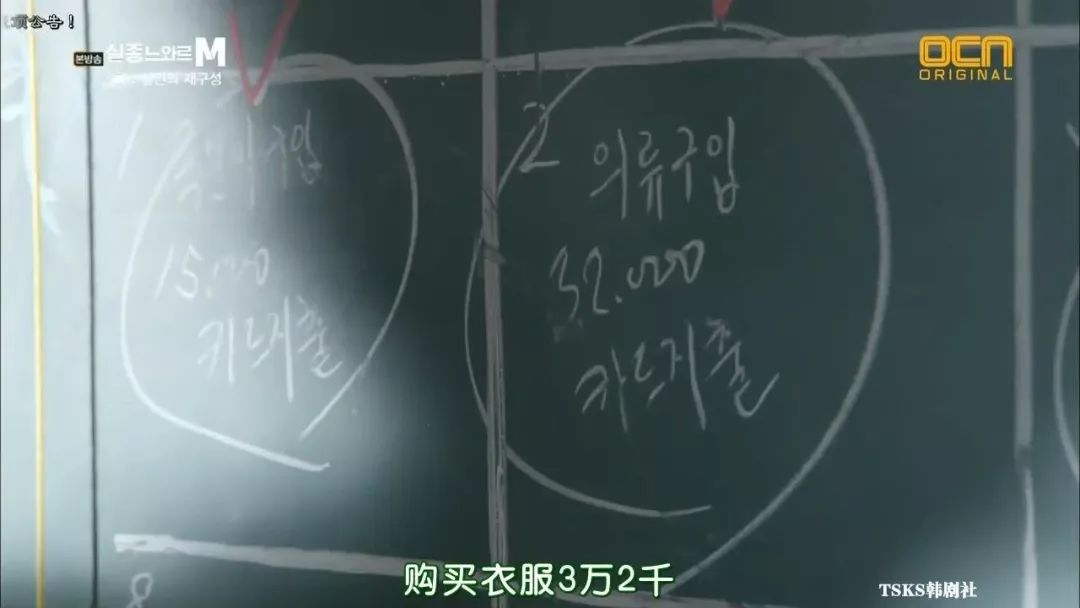 项公告！
본방송 실종느와르M
살인의 재구성
OCN
ORIGINAL
1
구입
15.000
카드지출
2
의류구입
32.000
카드지출
8
购买衣服3万2千
TSKS韩剧社